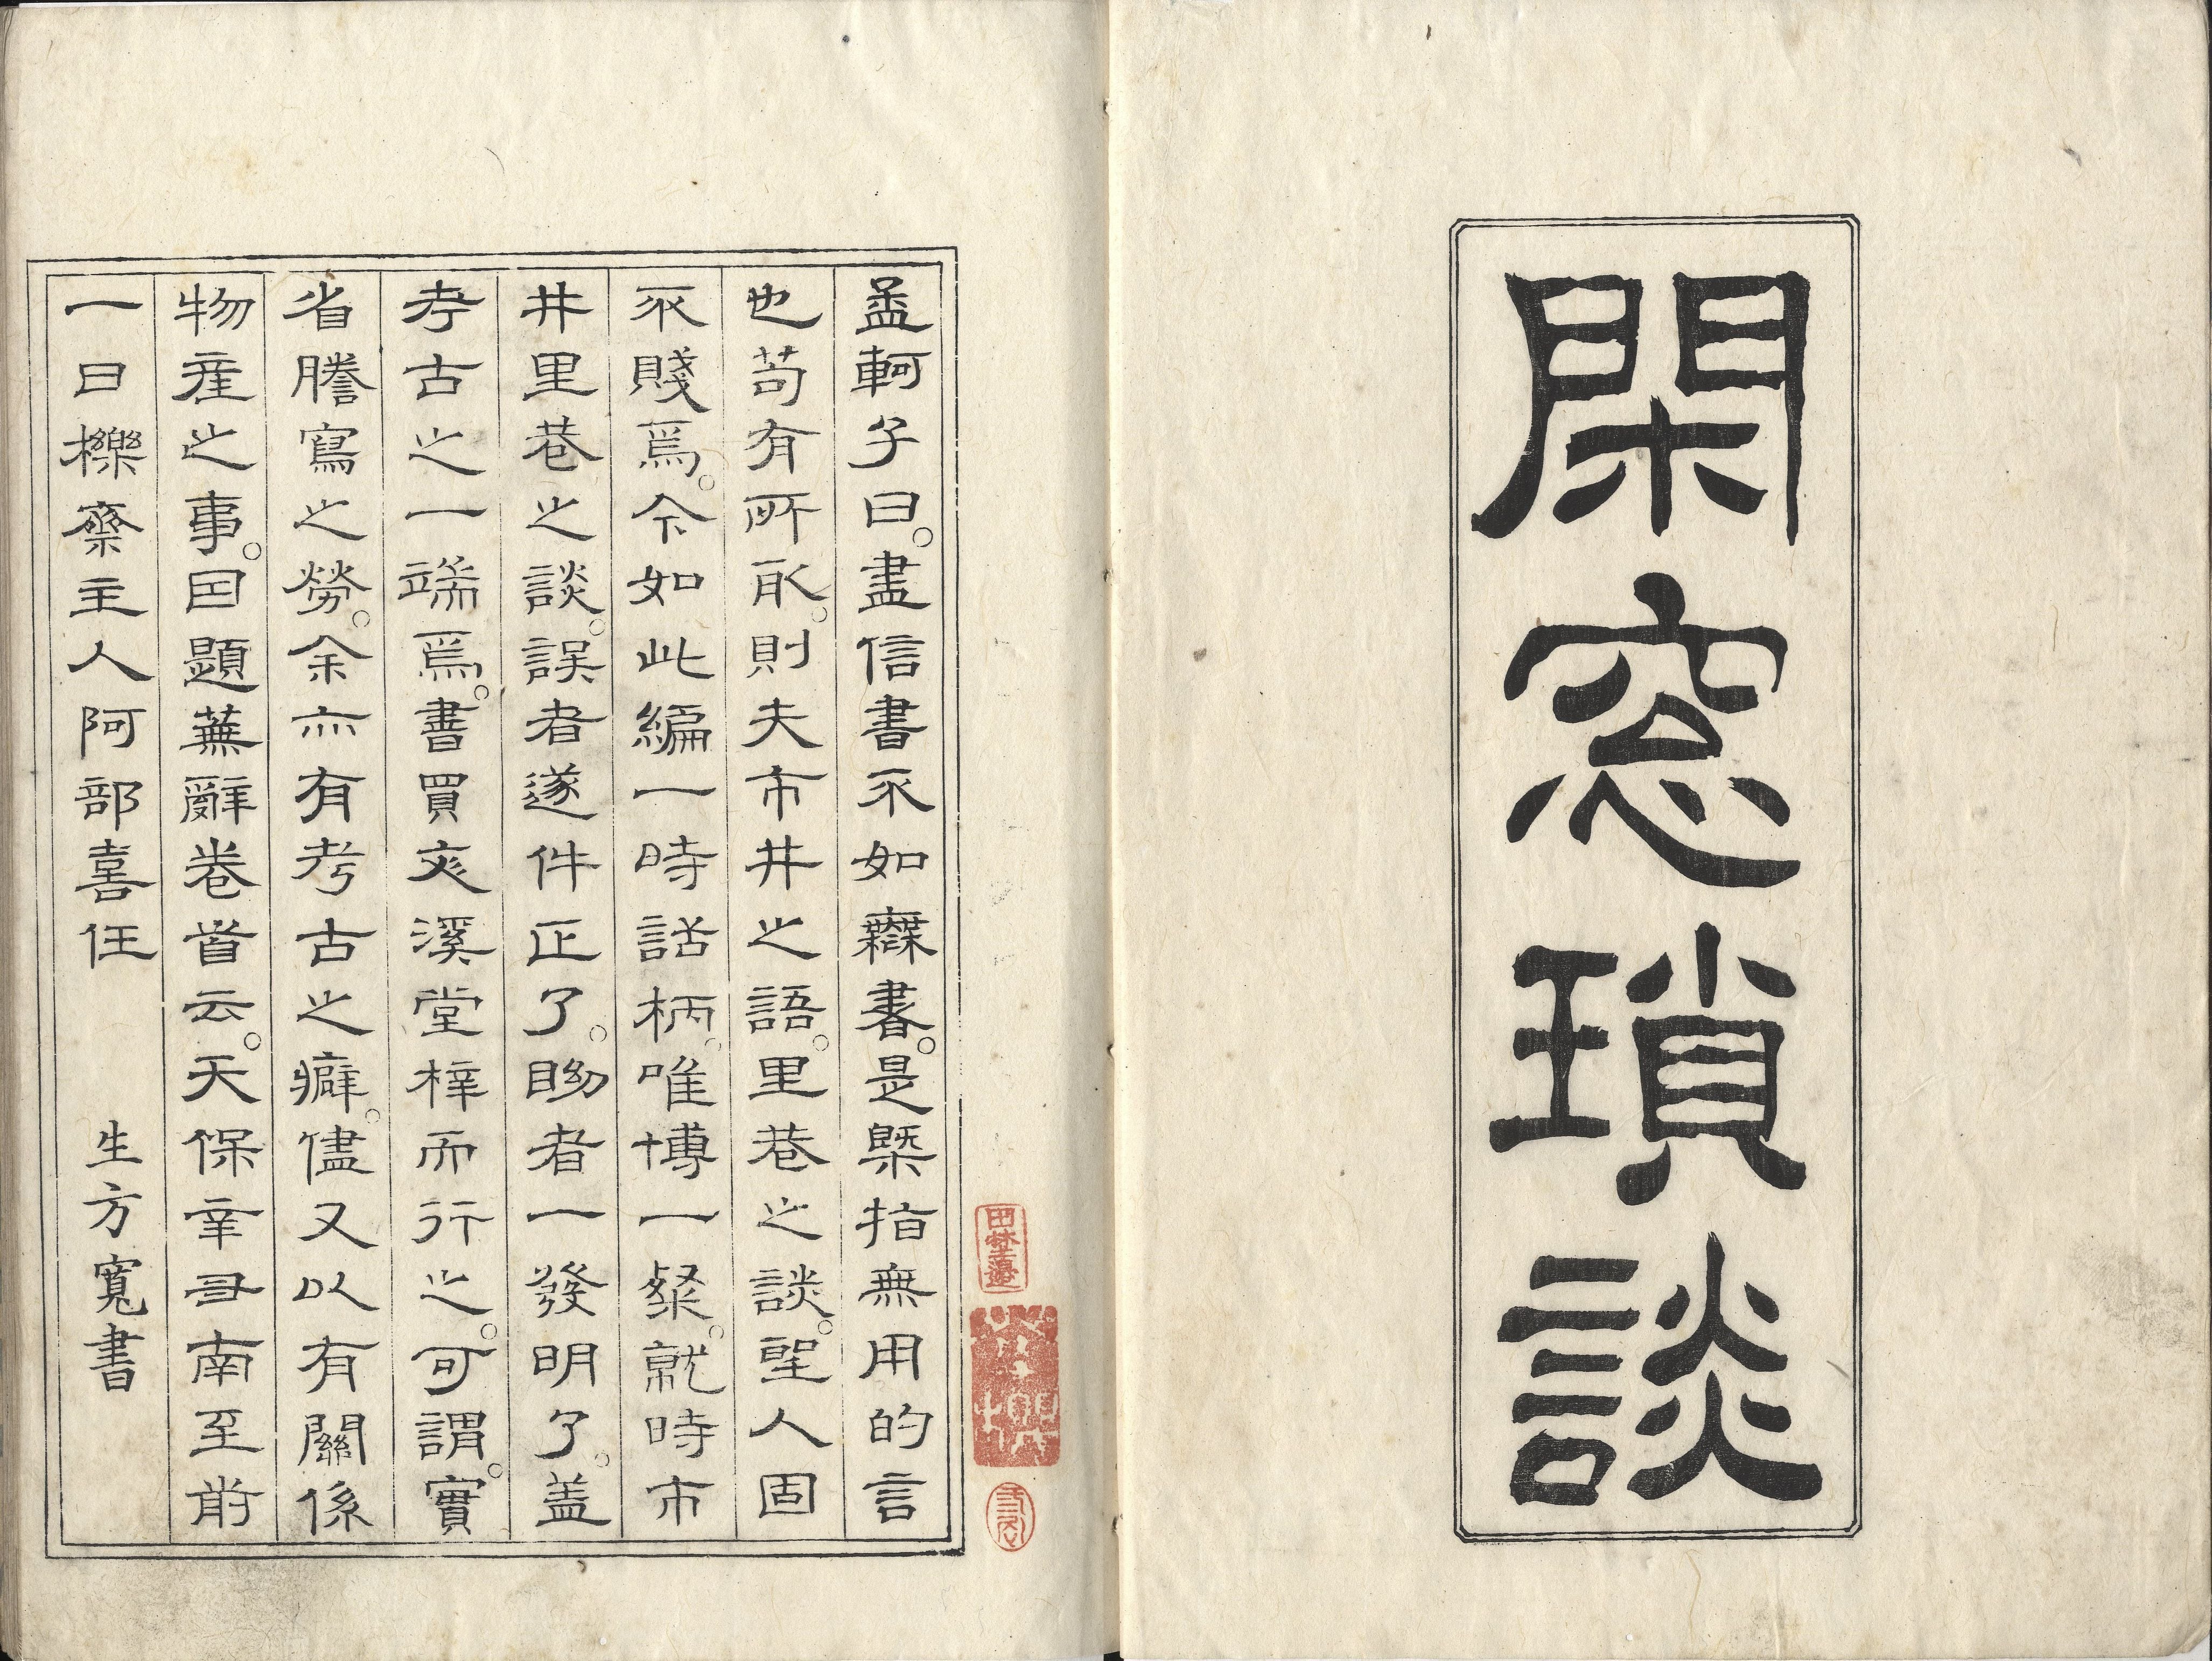 閑窓瑣談
孟軻子曰。盡信書不如無書。是槩指無用的言
也苟有所取。則夫市井之語。里巷之談。聖人固
不賤焉。今如此編一時話柄。唯博一粲。就時市
井里巷之談。誤者遂件正了。眇者一發明了。盖
考古之一端焉。書買夾溪堂梓而行之。可謂。實
省謄寫之勞。余亦有考古之癖。儘又以有關係
物産之事。因題蕪辭卷首云。天保辛丑南至前
一日櫟齋主人阿部喜任
生方寬書